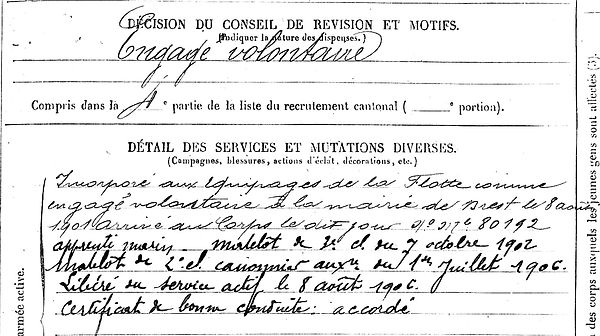 DÉCISION DU CONSEIL DE REVISION ET MOTIFS.
(Indiquer la nature des dispenses.)
Engagé volontaire
Compris dans la 4e partie de la liste du recrutement cantonal ( — e portion).
DÉTAIL DES SERVICES ET MUTATIONS DIVERSES.
(Campagnes, blessures, actions d'éclat, décorations, etc.)
Incorporé aux Equipages de la Flotte comme
engagé volontaire à la mairie de Brest le 8 août
1901 arrivé au Corps le dit jour No Mle 80192
apprenti marin. matelot de 3e cl du 7 octobre 1902
Matelot de 2e cl. canonnier auxre du 1er Juillet 1906.
Libéré du service actif le 8 août 1906.
Certificat de bonne conduite: accordé
armée active.
des corps auxquels les jeunes gens sont affectés (3).